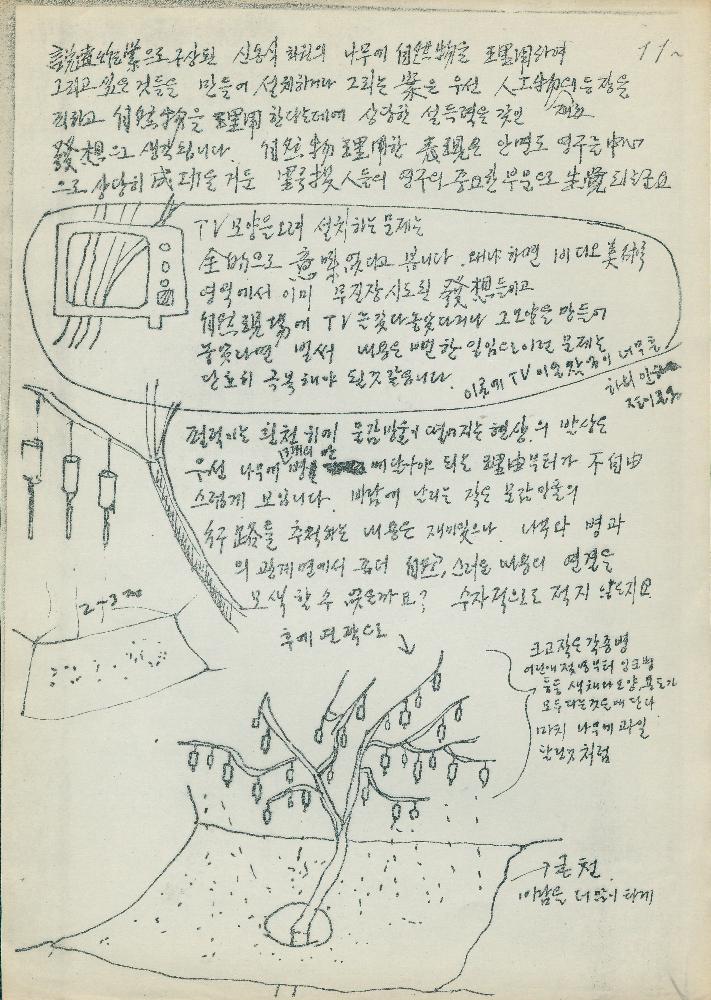 11~
으로 구상된 신동식 회원의 나무에 自然物을
그리고 싶은 것들을 만들어 설치하거나 그리는 案은 우선 人工物의 등장을
피하고 自然物을 한다는데에 상당한 설득력을 갖인
發想으로 생각됩니다. 自然物 한 表現은 안면도 연구를 中心
으로 상당히 成功을 거둔 人들의 연구의 중요한 부분으로 生覺되는군요
TV 모양을 오려 설치하는 문제는
全的으로 意味없다고 봅니다. 왜냐하면 비디오 美術
영역에서 이미 무진장 시도된 發想들이고
自然現場에 TV를 갖다 놓았다거나 그 모양을 만들어
놓았다면 벌써 내용은 뻔한 일임으로 이런 문제는
단호히 극복해야 될것 같읍니다.
이론에 TV 너무
펄럭이는 흰천 위에 물감방울이 떨어지는 현상의 발상은
우선 나무에 병 매달아야 되는 理由부터가 不自由
스럽게 보입니다. 바람에 날리는 작은 물감방울의
行路를 추적하는 내용은 재미있으나 나무와 병과
의 관계면에서 좀더 自然스러운 내용의 연결을
모색할 수 없을까요? 수자적으로 적지 않은지요
2~3m
후에 편팍으로
크고 작은 각종병
어린애 젖병부터 잉크병
등등 색채나 모양, 용도가
모두 다른것을 매단다
마치 나무에 과일
달린것 처럼
큰 천
바람을 더 많이 타게